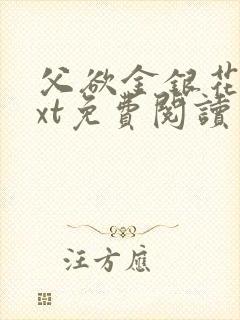 父欲金銀花
xt免費閱讀
汪方應